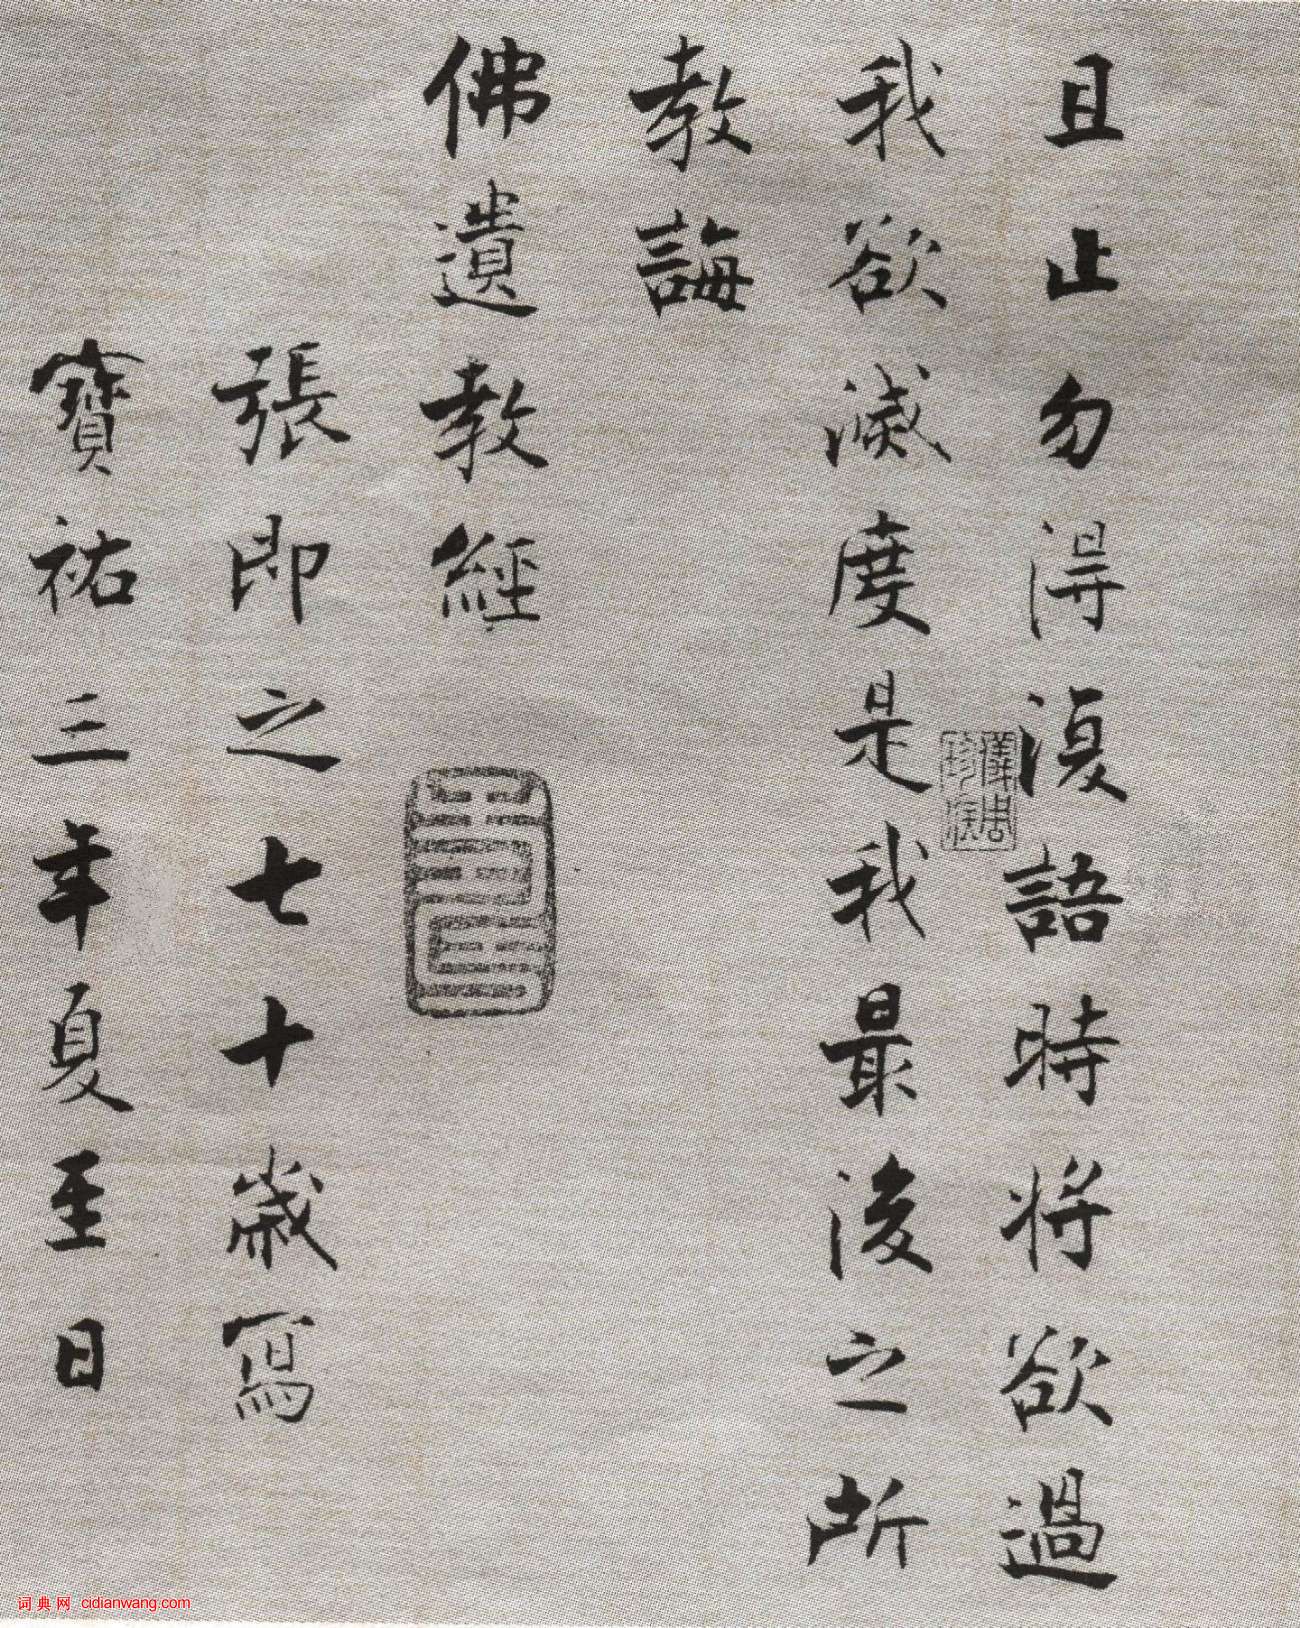 且止勿得復語時將欲過
我欲滅度是我最後之所
教誨
佛遺教經
張即之七十歲寫
寶祐三年夏至日
儀周珍藏
词典网 cidianwang.com